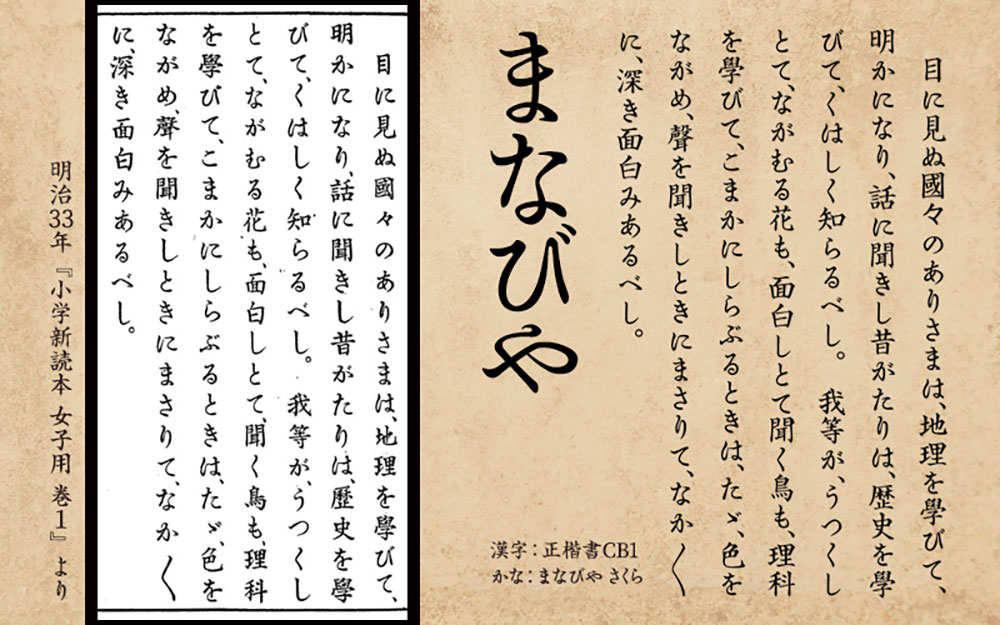 目に見ぬ國々のありさまは、地理を學びて、
明かになり、話に聞きし昔がたりは、歴史を學
びて、くはしく知らるべし。　我等が、うつくし
とて、ながむる花も、面白しとて聞く鳥も、理科
を學びて、こまかにしらぶるときは、たゞ、色を
ながめ、聲を聞きしときにまさりて、なか〱
に、深き面白みあるべし。
まなびや
漢字：正楷書CB1
かな：まなびや さくら
目に見ぬ國々のありさまは、地理を學びて、
明かになり、話に聞きし昔がたりは、歴史を學
びて、くはしく知らるべし。　我等が、うつくし
とて、ながむる花も、面白しとて、聞く鳥も、理科
を學びて、こまかにしらぶるときは、たゞ、色を
ながめ、聲を聞きしときにまさりて、なか〱
に、深き面白みあるべし。
明治33年『小学新読本 女子用 巻1』より